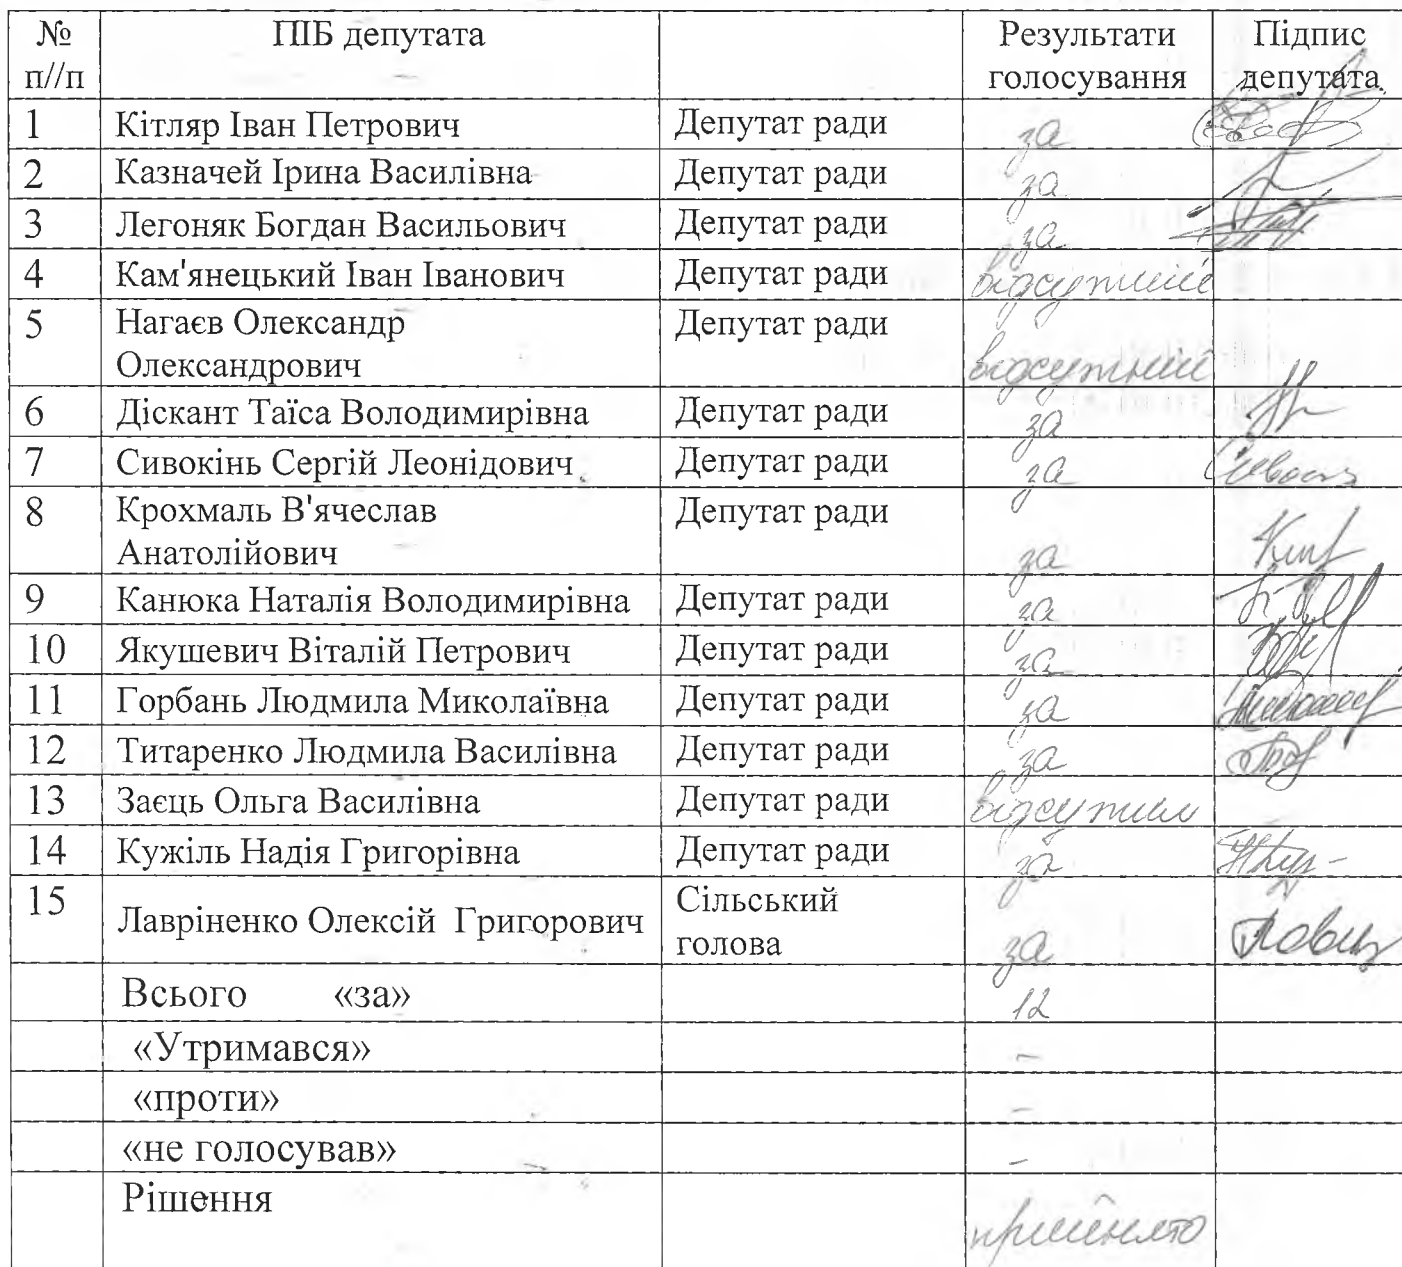 № п//п ПІБ депутата Результати голосування Підпис депутата
1 Кітляр Іван Петрович Депутат ради за
2 Казначей Ірина Василівна Депутат ради за
3 Легоняк Богдан Васильович Депутат ради за
4 Кам'янецький Іван Іванович Депутат ради відсутній
5 Нагаєв Олександр Олександрович Депутат ради відсутній
6 Діскант Таїса Володимирівна Депутат ради за
7 Сивокінь Сергій Леонідович Депутат ради за
8 Крохмаль В'ячеслав Анатолійович Депутат ради за
9 Канюка Наталія Володимирівна Депутат ради за
10 Якушевич Віталій Петрович Депутат ради за
11 Горбань Людмила Миколаївна Депутат ради за
12 Титаренко Людмила Василівна Депутат ради за
13 Заєць Ольга Василівна Депутат ради
14 Кужіль Надія Григорівна Депутат ради за
15 Лавріненко Олексій Григорович Сільський голова за
Всього «за» 12
«Утримався» -
«проти» -
«не голосував» -
Рішення прийнято